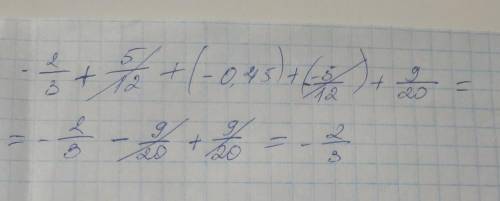 - 2/3 + 5/12 + (-0,45) + (-5/12) + 9/20 =
= - 2/3 - 9/20 + 9/20 = - 2/3